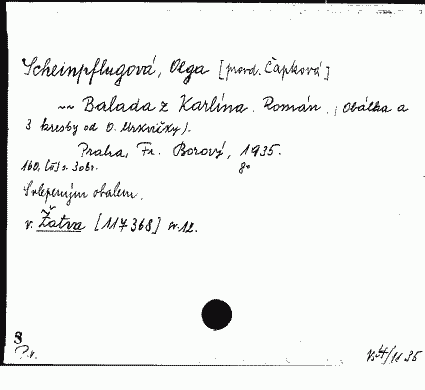 Scheinpflugová, Olga [provd. Čapková]
~~ Balada z Karlína. Román. (Obálka a
3 kresby od O. Mrkvičky).
Praha, Fr. Borový, 1935.
160, [II] s. 3 obr. 8°
S vlepeným obalem.
v. Žatva [117368] sv. 12.
8
P.v.
35